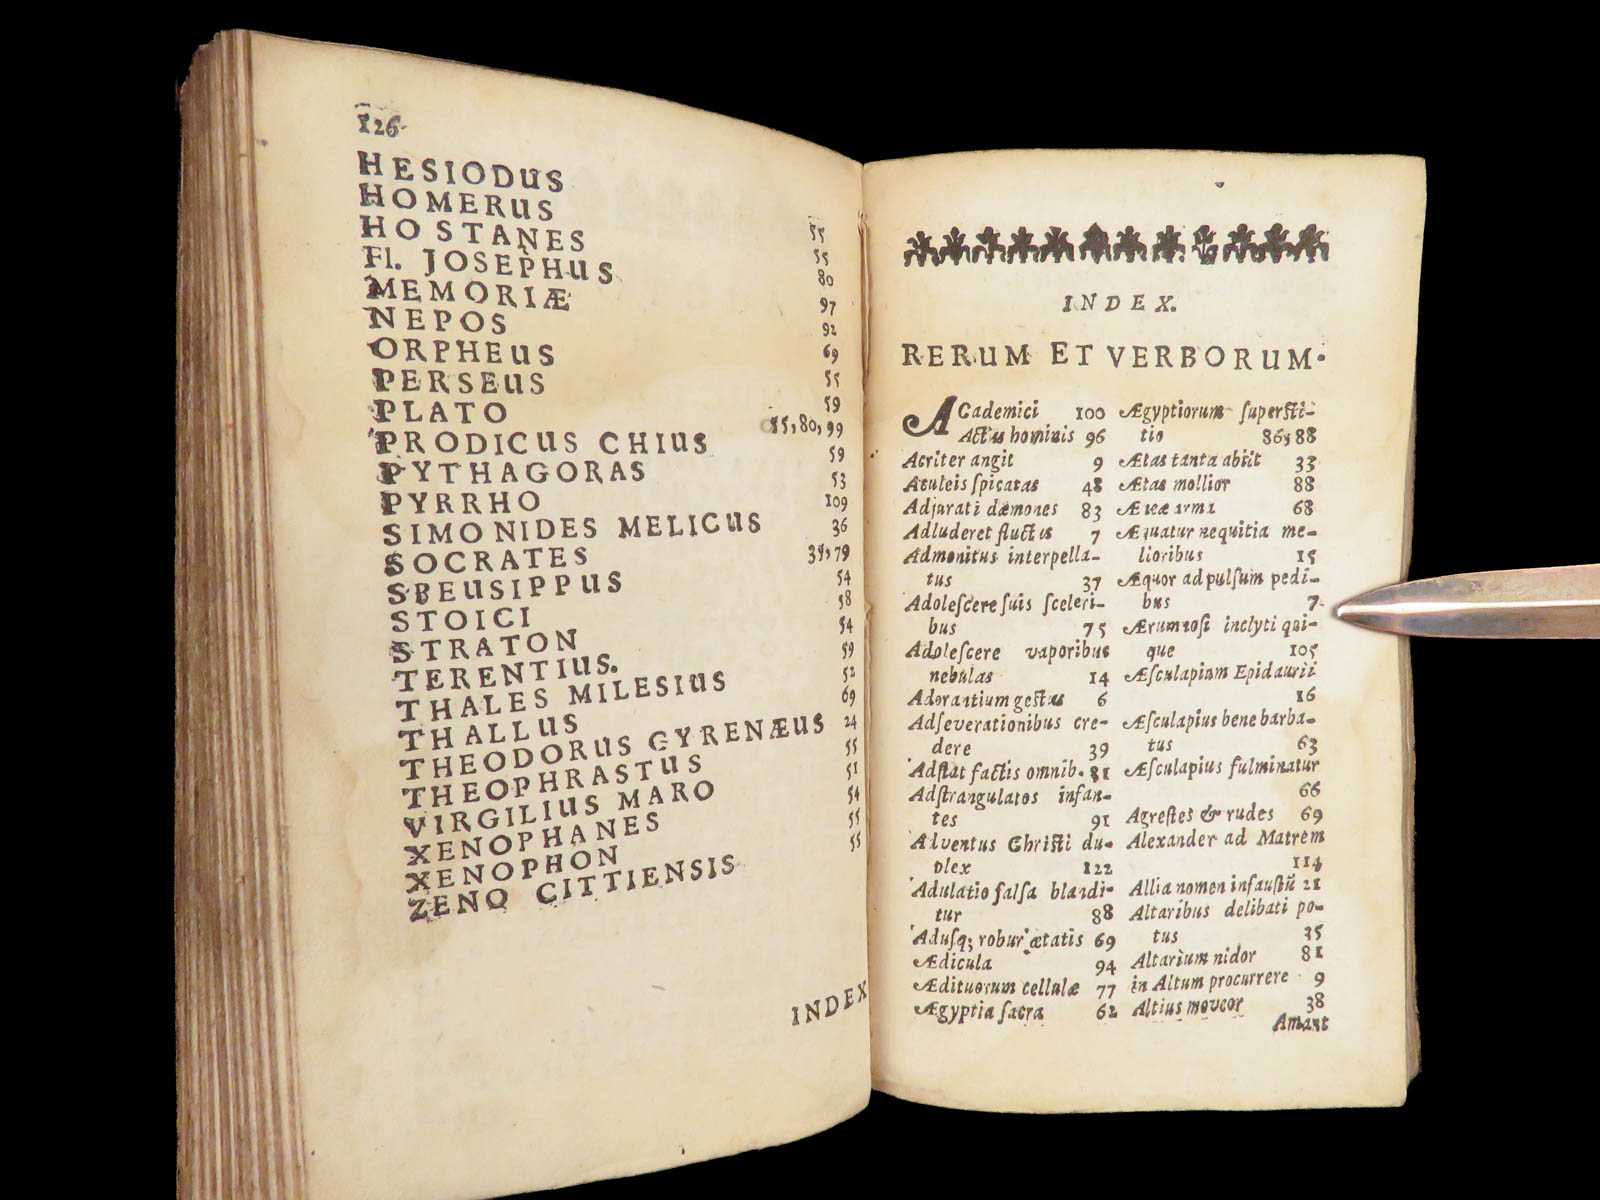 126
HESIODUS 55
HOMERUS 55
HOSTANES 80
Fl. JOSEPHUS 97
MEMORIÆ 92
NEPOS 69
ORPHEUS 55
PERSEUS 59
PLATO 55,80,99
PRODICUS CHIUS 59
PYTHAGORAS 53
PYRRHO 109
SIMONIDES MELICUS 36
SOCRATES 35,79
SBEUSIPPUS 54
STOICI 58
STRATON 54
TERENTIUS. 59
THALES MILESIUS 52
THALLUS 69
THEODORUS GYRENÆUS 24
THEOPHRASTUS 55
VIRGILIUS MARO 51
XENOPHANES 54
XENOPHON 55
ZENO CITTIENSIS 55
INDEX
INDEX.
RERUM ET VERBORUM.
ACademici 100
Actus hominis 96
Acriter angit 9
Aculeis ſpicatas 48
Adjurati dæmones 83
Adluderet fluctus 7
Admonitus interpella-
tus 37
Adoleſcere ſuis ſceleri-
bus 75
Adoleſcere vaporibus
nebulas 14
Adorantium geſtus 6
Adſeverationibus cre-
dere 39
Adſtat factis omnib. 81
Adſtrangulatos infan-
tes 91
Adventus Chriſti du-
plex 122
Adulatio falſa blandi-
tur 88
Aduſq; robur ætatis 69
Ædicula 94
Ædituorum cellulæ 77
Ægyptia ſacra 62
Ægyptiorum ſuperſti-
tio 86,88
Ætas tanta abiit 33
Ætas mollior 88
Æneæ arma 68
Æquatur nequitia me-
lioribus 15
Æquor ad pulſum pedi-
bus 7
Ærumnoſi inclyti qui-
que 105
Æſculapium Epidaurii
16
Æſculapius bene barba-
tus 63
Æſculapius fulminatur
66
Agreſtes & rudes 69
Alexander ad Matrem
114
Allia nomen infauſtũ 21
Altaribus delibati po-
tus 35
Altarium nidor 81
in Altum procurrere 9
Altius moveor 38
Amant